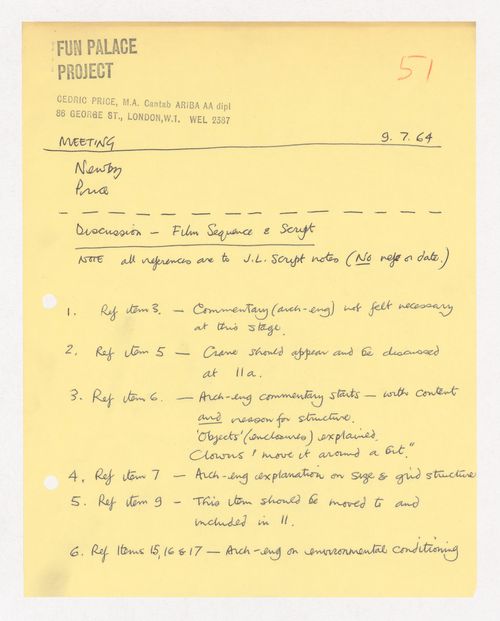 FUN PALACE
PROJECT
51
CEDRIC PRICE, M.A. Cantab ARIBA AA dipl
86 GEORGE ST., LONDON, W.1. WEL 2387
MEETING 9. 7. 64
Newby
Price
Discussion — Film Sequence & Script
NOTE all references are to J.L. Script notes (No ref or date.)
1. Ref item 3. — Commentary (arch-eng) not felt necessary
at this stage.
2. Ref item 5 — Crane should appear and be discussed
at 11a.
3. Ref item 6. — Arch-eng commentary starts — with content
and reason for structure.
'Objects' (enclosures) explained.
Clowns "move it around a bit."
4. Ref item 7 — Arch-eng explanation on size & grid structure
5. Ref item 9 — This item should be moved to and
included in 11.
6. Ref Items 15, 16 & 17 — Arch-eng on environmental conditioning